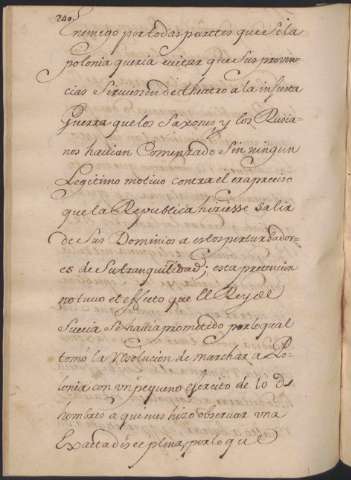 240
Enemigo por todas partes que si la
polonia queria evitar que sus provin
cias sirviesen de theatro a la injusta
Guerra que los Saxones y los Rusia
nos havian Comenzado sin ningun
Legitimo motivo contra el era preciso
que la Republica hiciesse salir
de sus Dominios a estos perturbador
es de su tranquilidad; esta pretencion
no tuvo el effeto que El Rey de
Suecia se havia prometido por lo qual
tomo la resolucion de marchar a Po
lonia con un pequeño exercito de
hombres a que nes hizo observar una
Exacta disceplina, por lo que